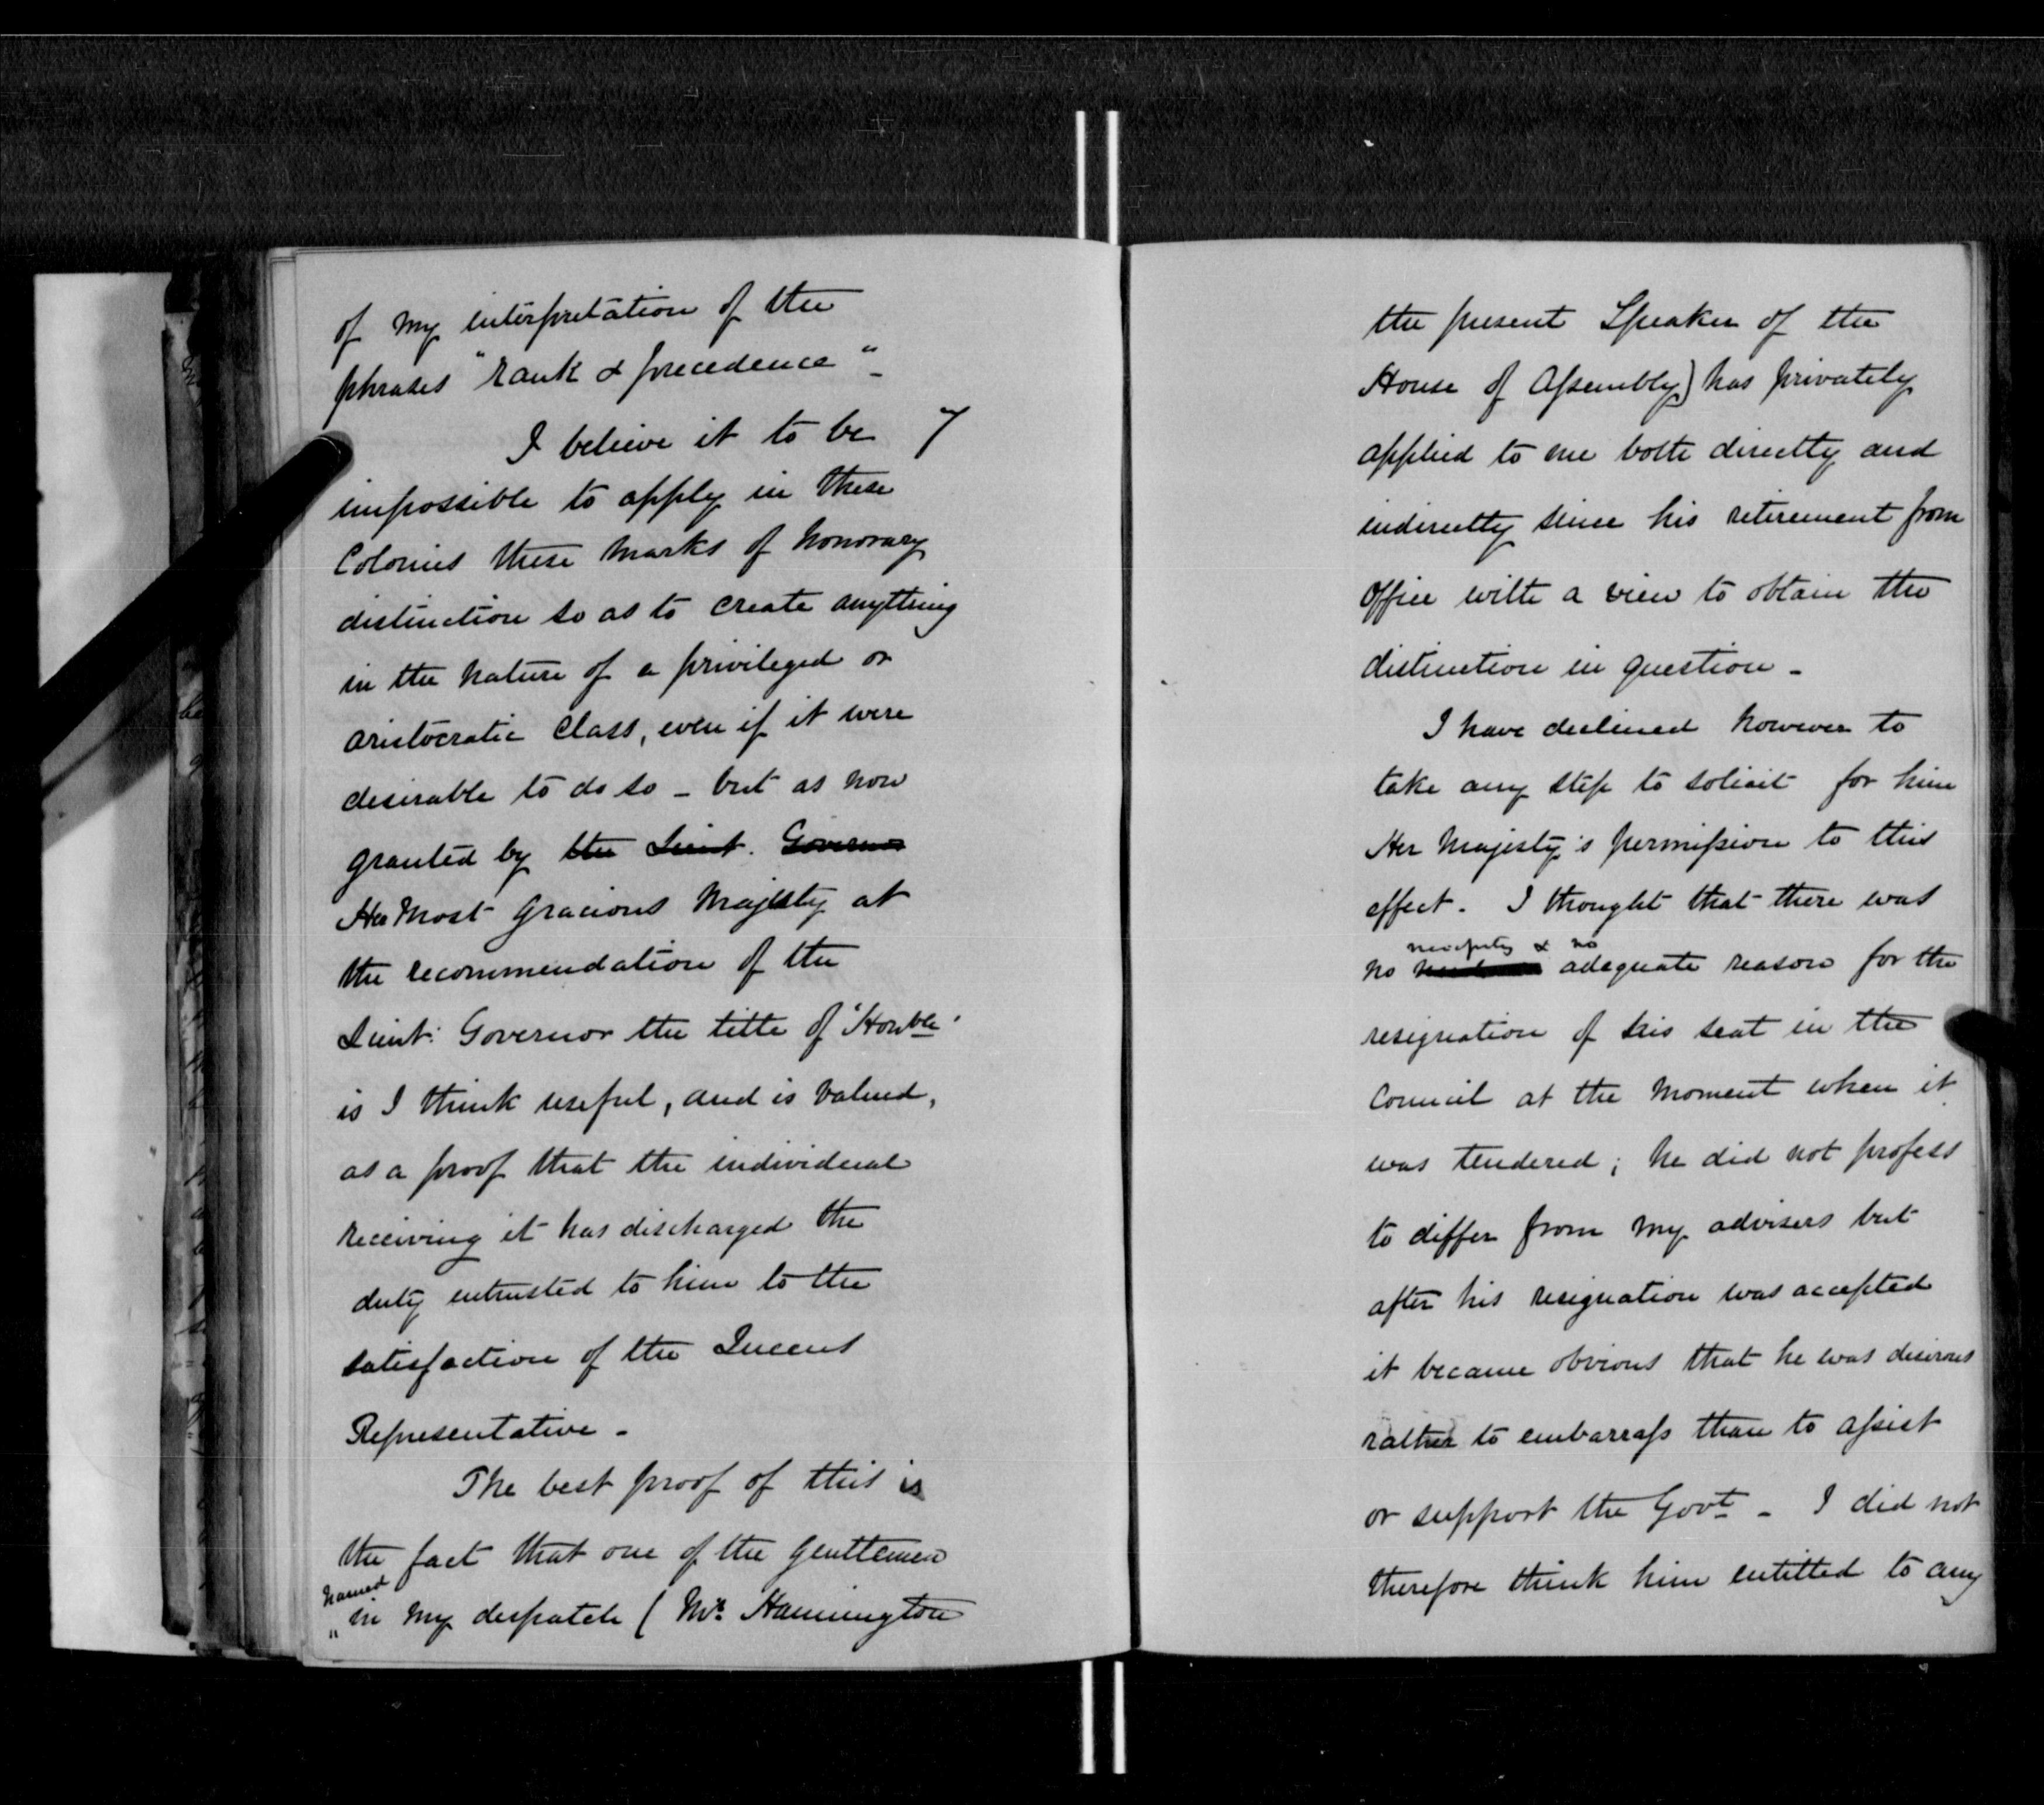 of my interpretation of the
phrases "rank & precedence" -
I believe it to be 7
impossible to apply in these
Colonies these marks of honorary
distinction so as to create anything
in the nature of a privileged or
aristocratic class, even if it were
desirable to do so - but as now
granted by the Lieut. Governor
Her Most Gracious Majesty at
the recommendation of the
Lieut: Governor the title of 'Honble'
is I think useful, and is valued,
as a proof that the individual
receiving it has discharged the
duty entrusted to him to the
satisfaction of the Queens
Representative -
The best proof of this is
the fact that one of the gentlemen
named
in my despatch (Mr. Hannington
the present Speaker of the
House of Assembly) has privately
applied to me both directly and
indirectly since his retirement from
office with a view to obtain the
distinction in question -
I have declined however to
take any step to solicit for him
Her Majesty's permission to this
effect. I thought that there was
necessity & no
no adequate reason for the
resignation of his seat in the
Council at the moment when it
was tendered; he did not profess
to differ from my advisers but
after his resignation was accepted
it became obvious that he was desirous
rather to embarrass than to assist
or support the Govt - I did not
therefore think him entitled to any